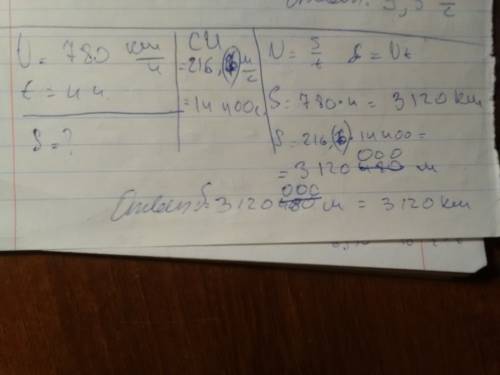 υ = 780 км/ч
t = 4 ч
S = ?
СИ
= 216,(6) м/с
= 14 400 с
υ = S/t S = υt
S = 780 · 4 = 3120 км
S = 216,(6) · 14 400 =
= 3120 000 м
Ответ: S = 3120 000 м = 3120 км